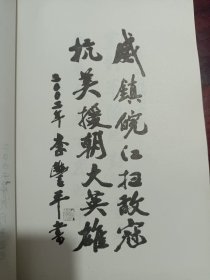 威鎮皖江扫敌寇
抗美援朝大英雄
二〇〇二年 李豐平書